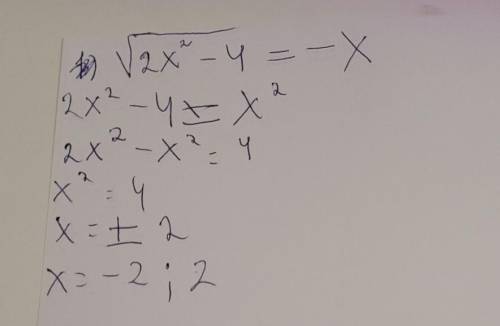 √(2x² - 4) = -x
2x² - 4 = x²
2x² - x² = 4
x² = 4
x = ± 2
x = -2 ; 2